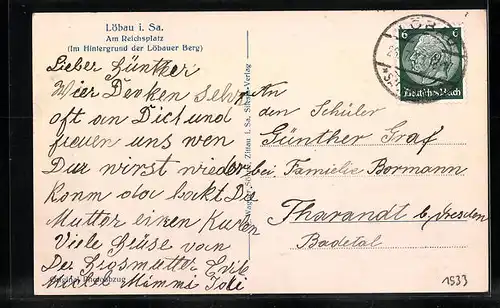 Löbau i. Sa.
Am Reichsplatz
(Im Hintergrund der Löbauer Berg)
Lieber Günther
Wier Denken sehr
oft an Dich und
freuen uns wen
Du wirst wieder
Komm da bakt Die
Mutter einen Kuchen
Viele Grüse von
Mimmi
6
6
Deutsches Reich
An
den Schüler
Günther Graf
bei Famielie Bormann
Tharandt b. Dresden
Badetal
1533